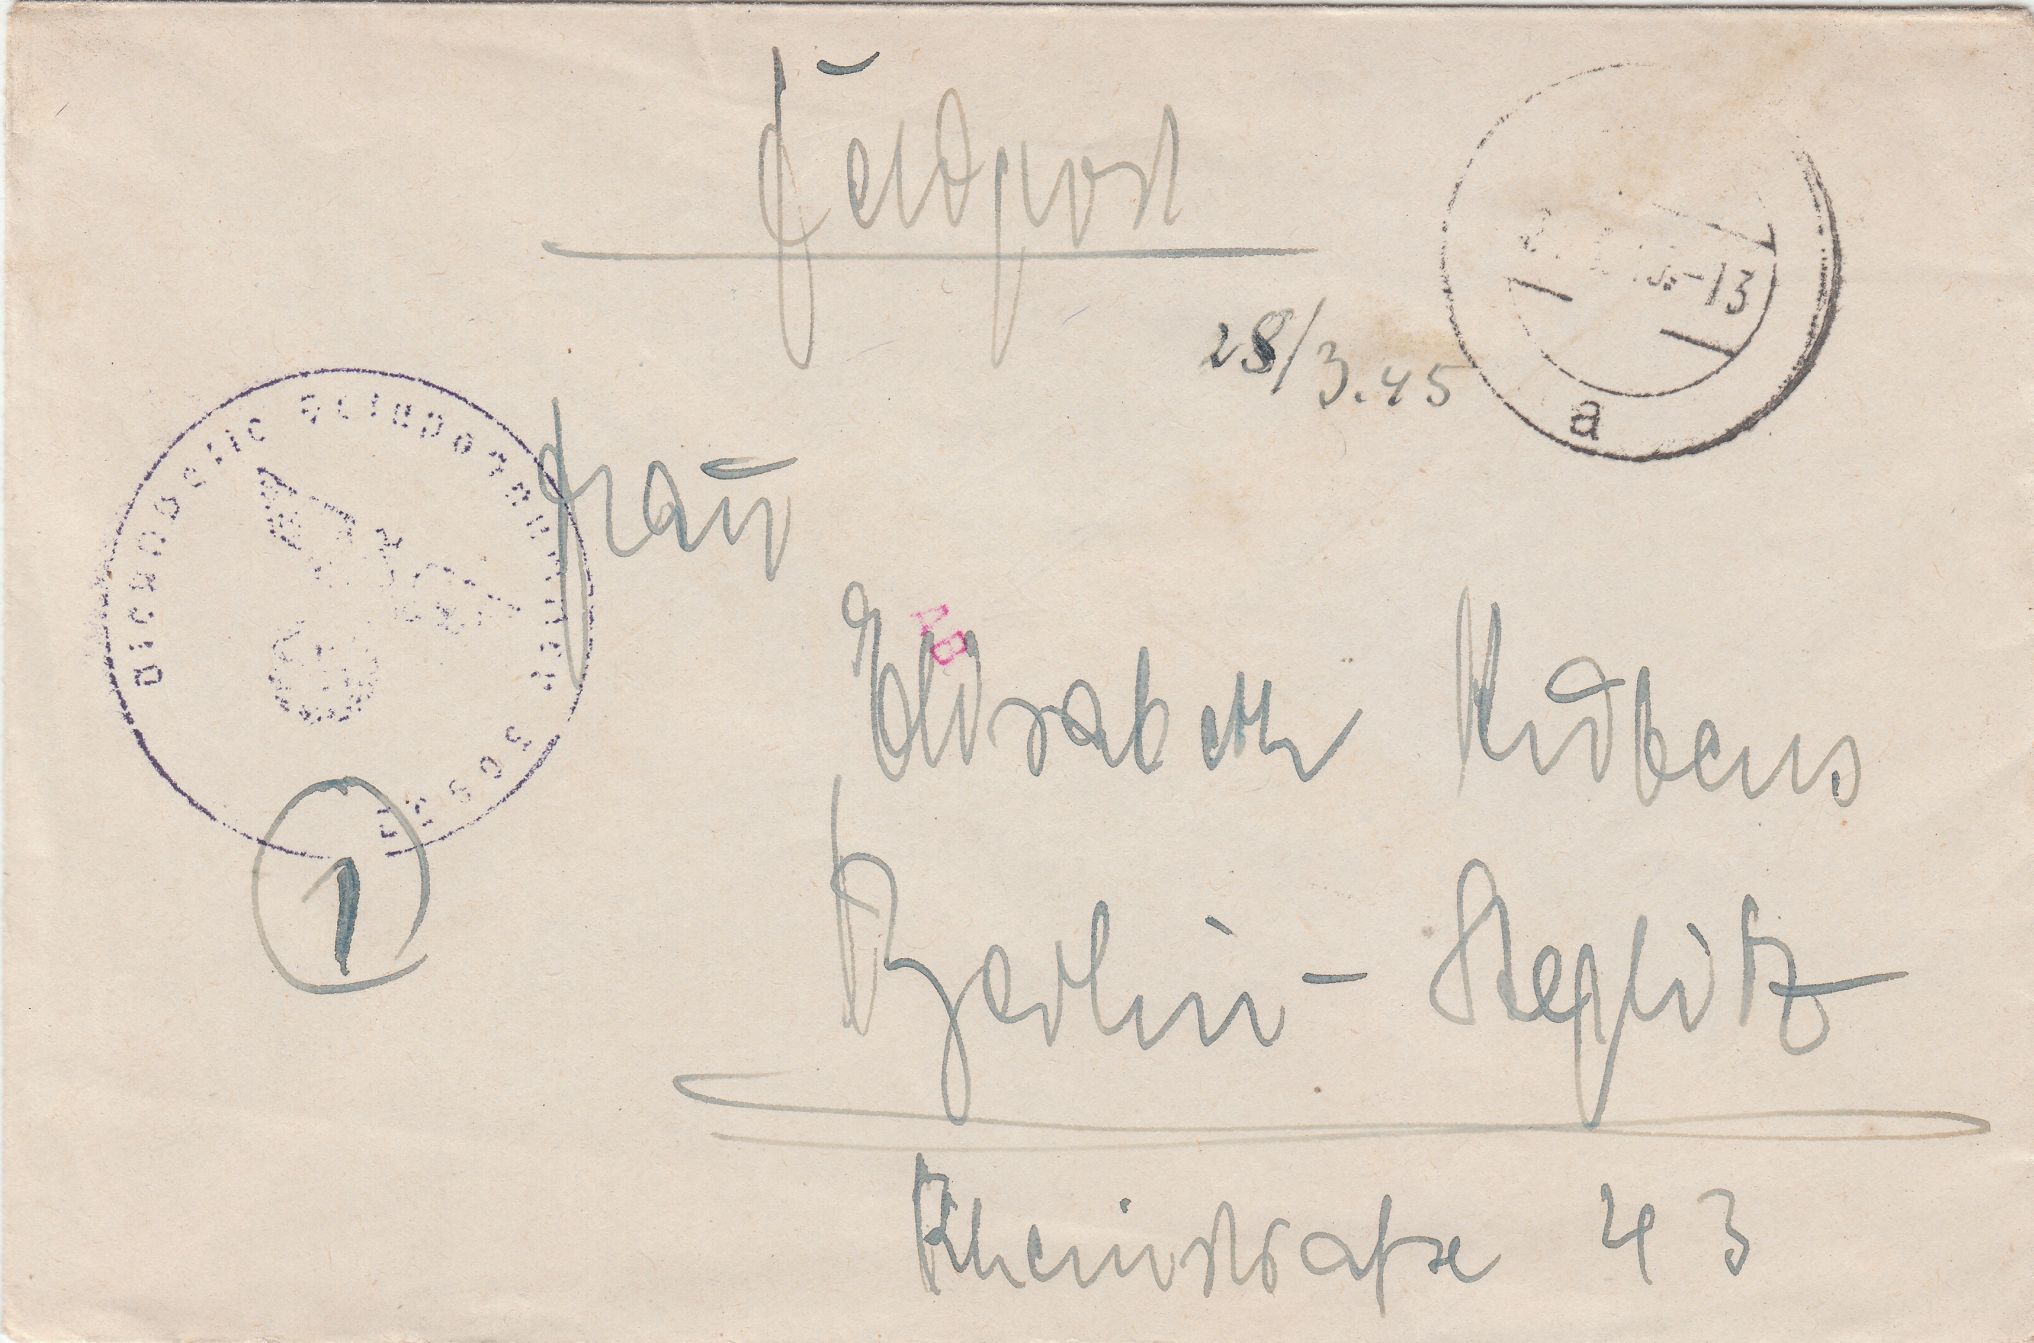 Feldpost
-13
28/3.45
a
Dienststelle Feldpostnummer
Frau
AB
Elisabeth
1
Berlin-Steglitz
Rheinstraße 43